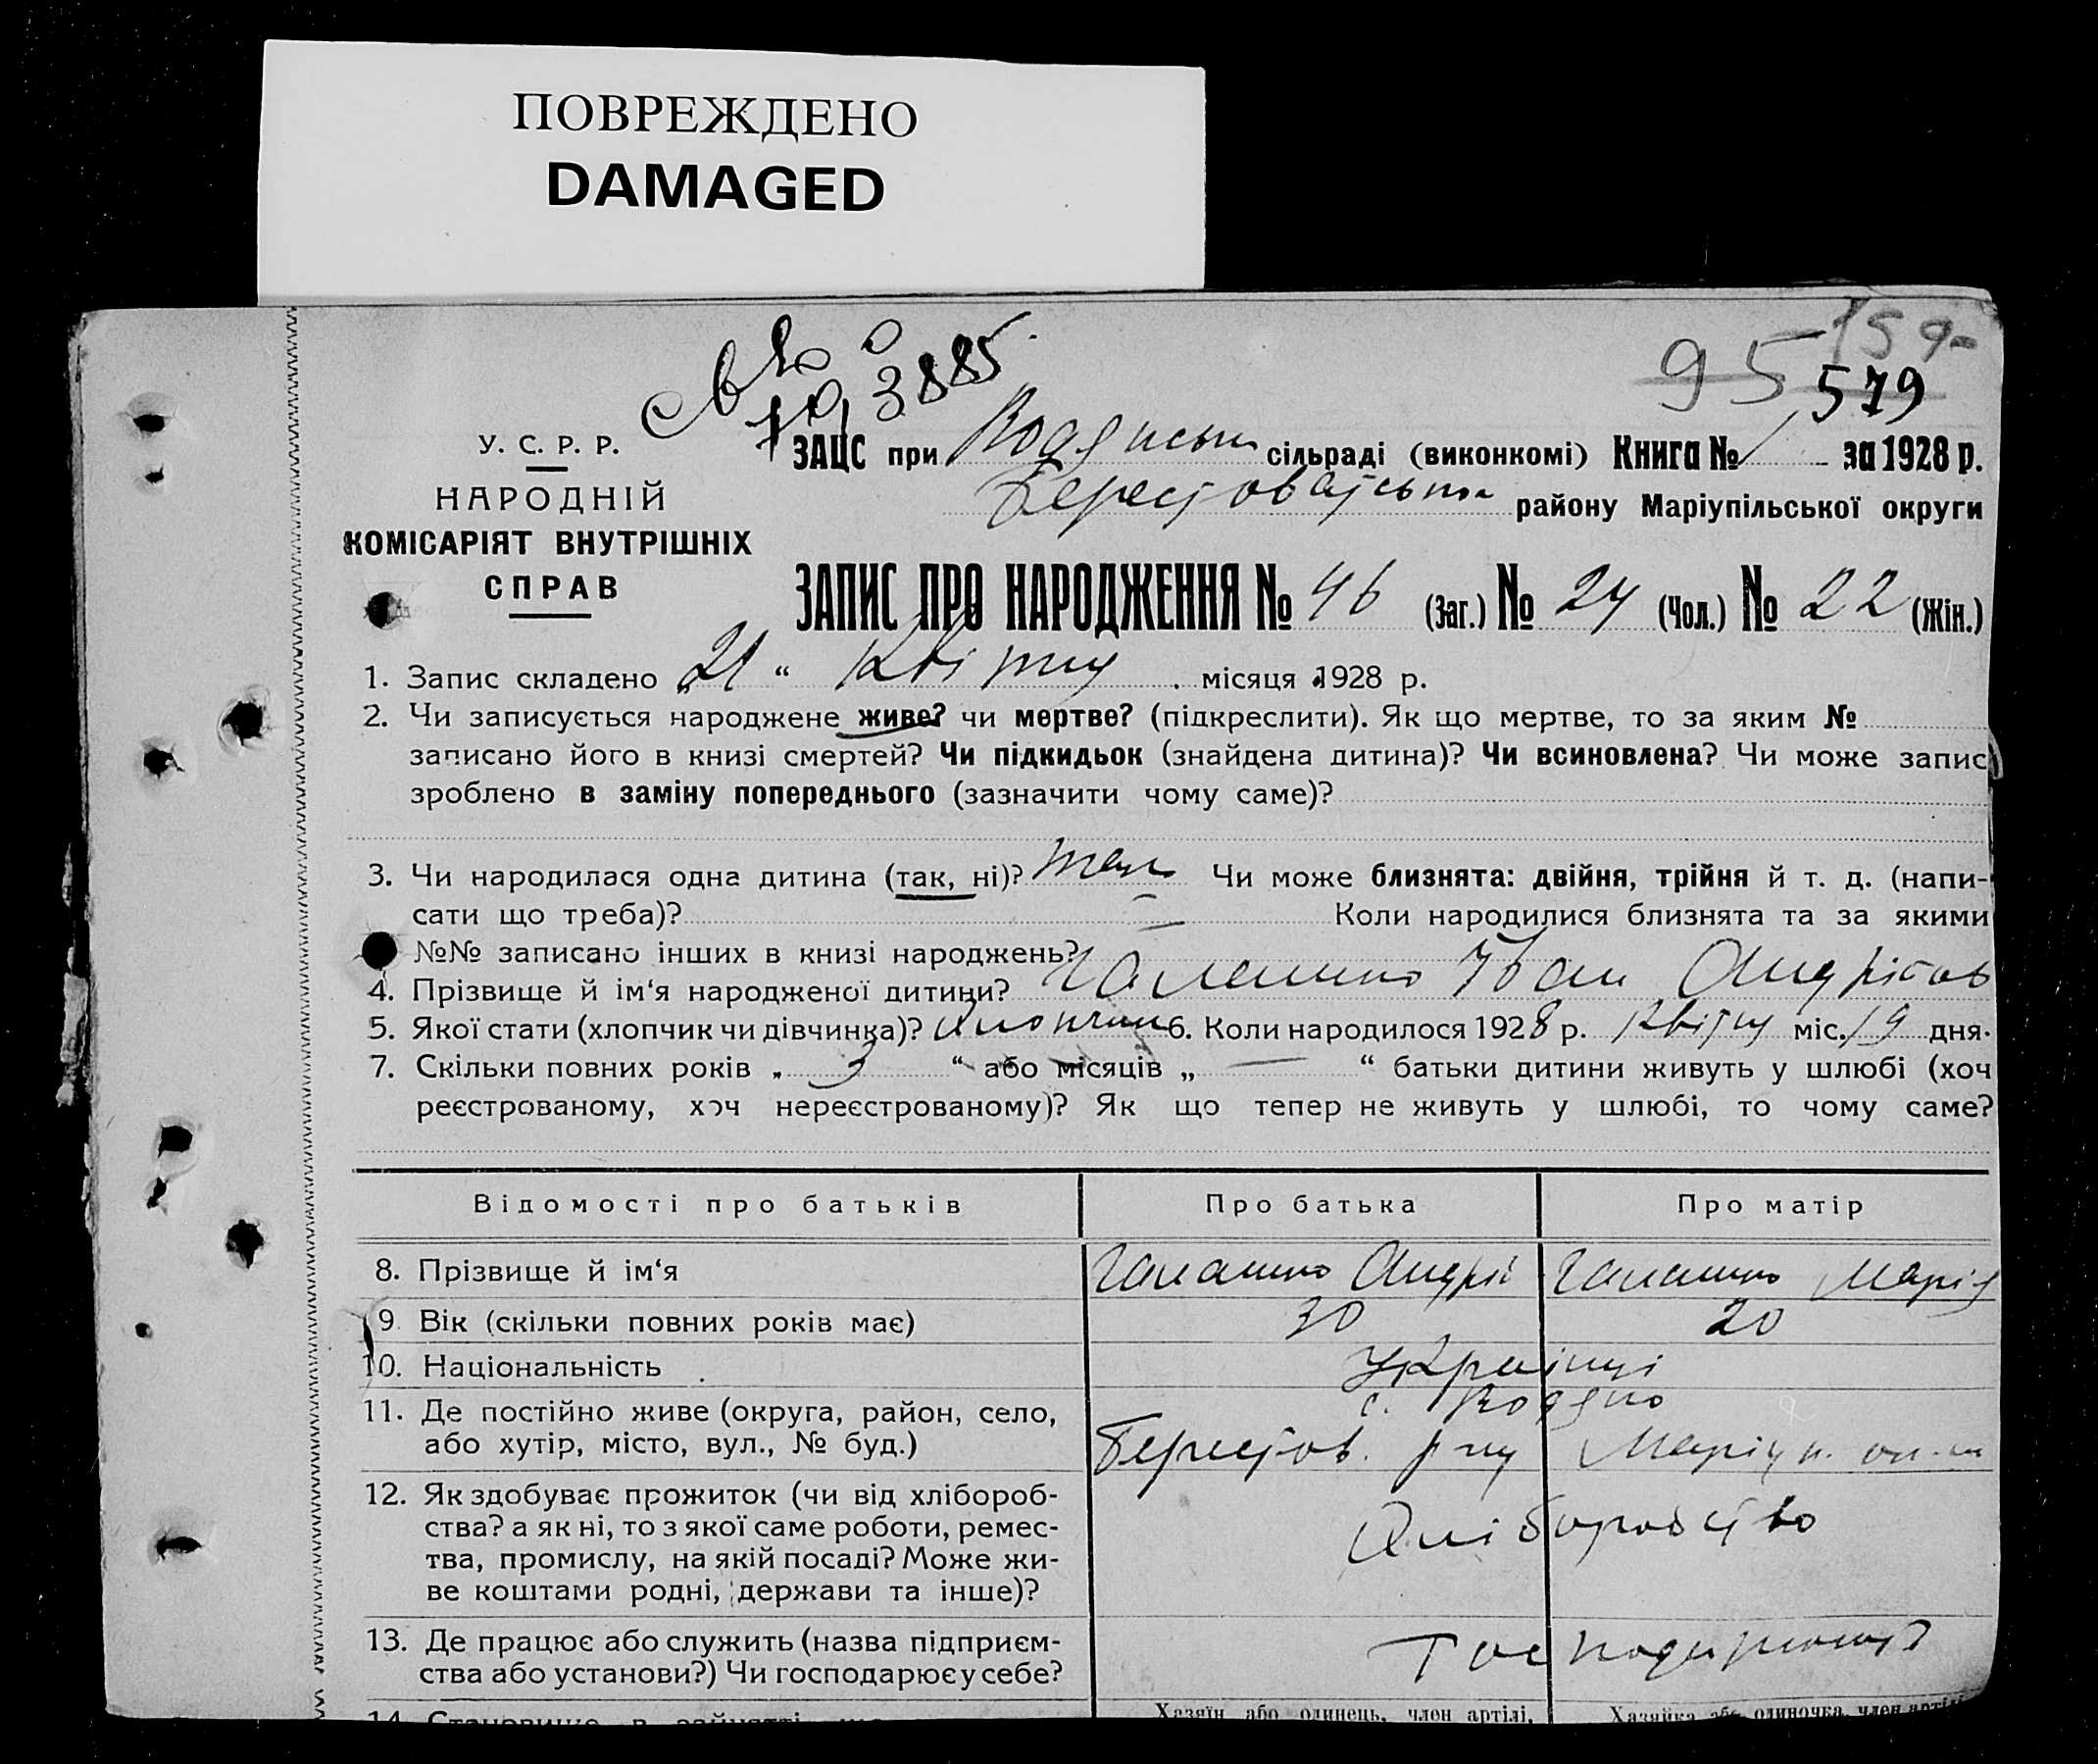 ПОВРЕЖДЕНО
DAMAGED
3885
159
95
579
У. С. Р. Р.
НАРОДНІЙ
КОМІСАРІЯТ ВНУТРІШНІХ
СПРАВ
ЗАЦС при Водянськ сільраді (виконкомі) Книга № 1 за 1928 р.
Берестоватськ району Маріупільської округи
ЗАПИС ПРО НАРОДЖЕННЯ № 46 (Заг.) № 24 (Чол.) № 22 (Жін.)
1. Запис складено „21“ Квітну місяця 1928 р.
2. Чи записується народжене живе? чи мертве? (підкреслити). Як що мертве, то за яким №
записано його в книзі смертей? Чи підкидьок (знайдена дитина)? Чи всиновлена? Чи може запис
зроблено в заміну попереднього (зазначити чому саме)?
3. Чи народилася одна дитина (так, ні)? так Чи може близнята: двійня, трійня й т. д. (напи-
сати що треба)? — Коли народилися близнята та за якими
№№ записано інших в книзі народжень?
4. Прізвище й ім‘я народженої дитини? Галашко Іван Андрієов
5. Якої стати (хлопчик чи дівчинка)? Хлопчик 6. Коли народилося 1928 р. Квітну міс. 19 дня.
7. Скільки повних років „ 3 “ або місяців „ — “ батьки дитини живуть у шлюбі (хоч
реєстрованому, хоч нереєстрованому)? Як що тепер не живуть у шлюбі, то чому саме?
Відомості про батьків Про батька Про матір
8. Прізвище й ім‘я Галашко Андрій Галашко Марія
9. Вік (скільки повних років має) 30 20
10. Національність Українці
11. Де постійно живе (округа, район, село, с. Водяно
або хутір, місто, вул., № буд.) Берестов. р-ну Маріуп. ок-и
12. Як здобуває прожиток (чи від хлібороб-
ства? а як ні, то з якої саме роботи, ремес- Хліборобство
тва, промислу, на якій посаді? Може жи-
ве коштами родні, держави та інше)?
13. Де працює або служить (назва підприєм-
ства або установи?) Чи господарює у себе?
14. Становище в занятті
Хазяїн або одинець, член артілі, Хазяйка або одиночка, член артілі